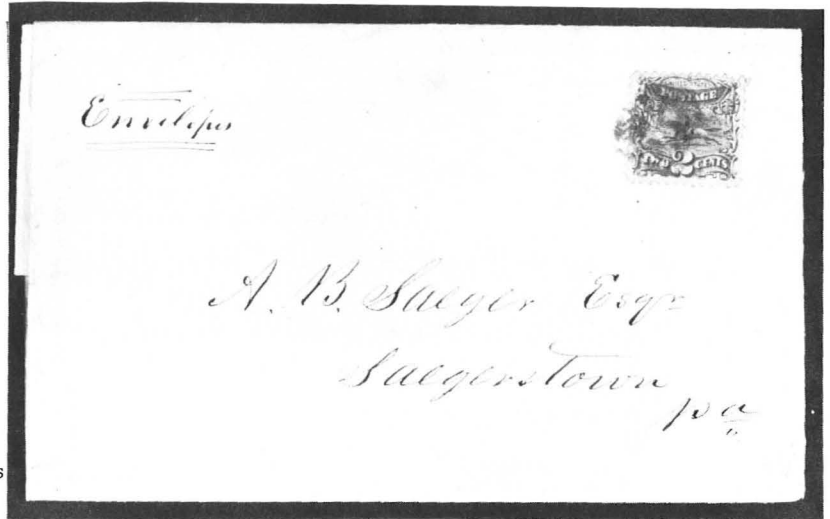 Envelopes
POSTAGE
TWO 2 CENTS
A. B. Saeger Esqr
Saegerstown
pa
s